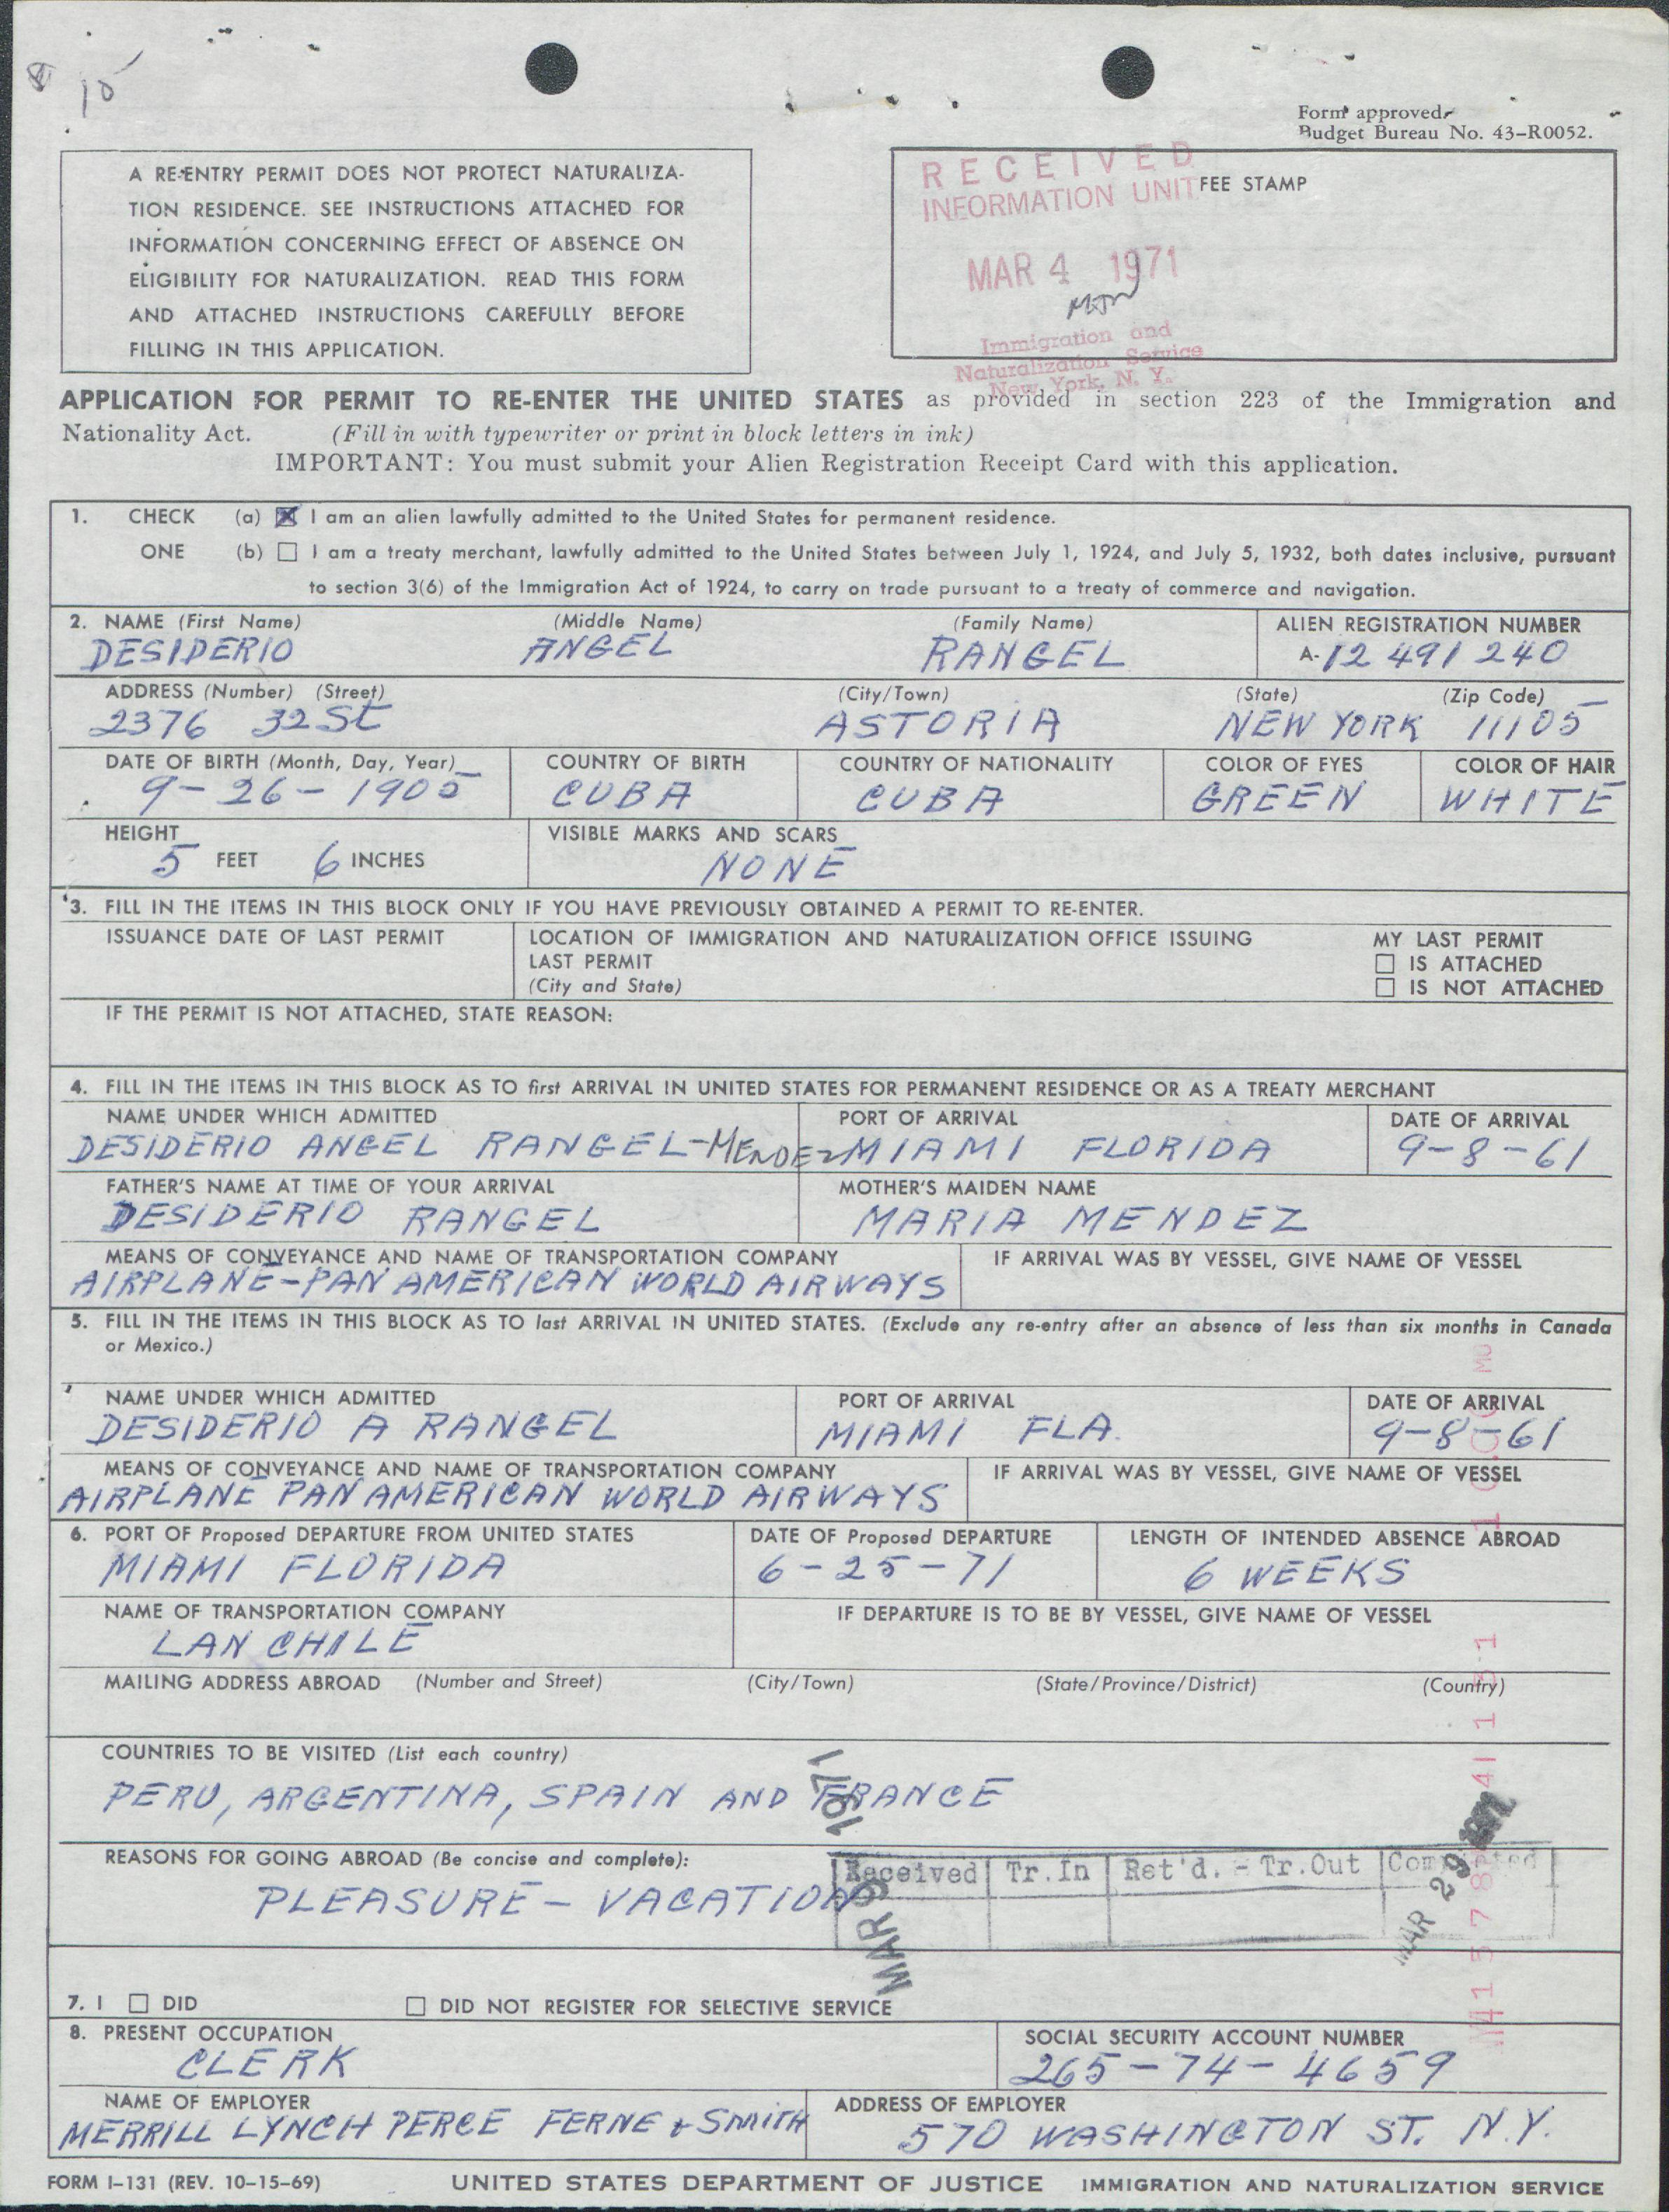 10
Form approved.
Budget Bureau No. 43-R0052.
A RE-ENTRY PERMIT DOES NOT PROTECT NATURALIZA-
TION RESIDENCE. SEE INSTRUCTIONS ATTACHED FOR
INFORMATION CONCERNING EFFECT OF ABSENCE ON
ELIGIBILITY FOR NATURALIZATION. READ THIS FORM
AND ATTACHED INSTRUCTIONS CAREFULLY BEFORE
FILLING IN THIS APPLICATION.
FEE STAMP
RECEIVED
INFORMATION UNIT
MAR 4 1971
Immigration and
Naturalization Service
New York, N. Y.
APPLICATION FOR PERMIT TO RE-ENTER THE UNITED STATES as provided in section 223 of the Immigration and
Nationality Act. (Fill in with typewriter or print in block letters in ink)
IMPORTANT: You must submit your Alien Registration Receipt Card with this application.
1. CHECK (a) I am an alien lawfully admitted to the United States for permanent residence.
ONE (b) I am a treaty merchant, lawfully admitted to the United States between July 1, 1924, and July 5, 1932, both dates inclusive, pursuant
to section 3(6) of the Immigration Act of 1924, to carry on trade pursuant to a treaty of commerce and navigation.
2. NAME (First Name) (Middle Name) (Family Name) ALIEN REGISTRATION NUMBER
DESIDERIO ANGEL RANGEL A-12 491 240
ADDRESS (Number) (Street) (City/Town) (State) (Zip Code)
2376 32 St ASTORIA NEW YORK 11105
DATE OF BIRTH (Month, Day, Year) COUNTRY OF BIRTH COUNTRY OF NATIONALITY COLOR OF EYES COLOR OF HAIR
9-26-1905 CUBA CUBA GREEN WHITE
HEIGHT VISIBLE MARKS AND SCARS
5 FEET 6 INCHES NONE
3. FILL IN THE ITEMS IN THIS BLOCK ONLY IF YOU HAVE PREVIOUSLY OBTAINED A PERMIT TO RE-ENTER.
ISSUANCE DATE OF LAST PERMIT LOCATION OF IMMIGRATION AND NATURALIZATION OFFICE ISSUING MY LAST PERMIT
LAST PERMIT IS ATTACHED
(City and State) IS NOT ATTACHED
IF THE PERMIT IS NOT ATTACHED, STATE REASON:
4. FILL IN THE ITEMS IN THIS BLOCK AS TO first ARRIVAL IN UNITED STATES FOR PERMANENT RESIDENCE OR AS A TREATY MERCHANT
NAME UNDER WHICH ADMITTED PORT OF ARRIVAL DATE OF ARRIVAL
DESIDERIO ANGEL RANGEL-MENDEZ MIAMI FLORIDA 9-8-61
FATHER'S NAME AT TIME OF YOUR ARRIVAL MOTHER'S MAIDEN NAME
DESIDERIO RANGEL MARIA MENDEZ
MEANS OF CONVEYANCE AND NAME OF TRANSPORTATION COMPANY IF ARRIVAL WAS BY VESSEL, GIVE NAME OF VESSEL
AIRPLANE-PAN AMERICAN WORLD AIRWAYS
5. FILL IN THE ITEMS IN THIS BLOCK AS TO last ARRIVAL IN UNITED STATES. (Exclude any re-entry after an absence of less than six months in Canada
or Mexico.)
NAME UNDER WHICH ADMITTED PORT OF ARRIVAL DATE OF ARRIVAL
DESIDERIO A RANGEL MIAMI FLA. 9-8-61
MEANS OF CONVEYANCE AND NAME OF TRANSPORTATION COMPANY IF ARRIVAL WAS BY VESSEL, GIVE NAME OF VESSEL
AIRPLANE PAN AMERICAN WORLD AIRWAYS
6. PORT OF Proposed DEPARTURE FROM UNITED STATES DATE OF Proposed DEPARTURE LENGTH OF INTENDED ABSENCE ABROAD
MIAMI FLORIDA 6-25-71 6 WEEKS
NAME OF TRANSPORTATION COMPANY IF DEPARTURE IS TO BE BY VESSEL, GIVE NAME OF VESSEL
LAN CHILE
MAILING ADDRESS ABROAD (Number and Street) (City/Town) (State/Province/District) (Country)
COUNTRIES TO BE VISITED (List each country)
PERU, ARGENTINA, SPAIN AND FRANCE
REASONS FOR GOING ABROAD (Be concise and complete):
PLEASURE - VACATION
Received Tr.In Ret'd. - Tr.Out Completed
MAR 9 1971
MAR 29
7. I DID DID NOT REGISTER FOR SELECTIVE SERVICE
8. PRESENT OCCUPATION SOCIAL SECURITY ACCOUNT NUMBER
CLERK 265-74-4659
NAME OF EMPLOYER ADDRESS OF EMPLOYER
MERRILL LYNCH PERCE FERNE & SMITH 570 WASHINGTON ST. N.Y.
FORM I-131 (REV. 10-15-69) UNITED STATES DEPARTMENT OF JUSTICE IMMIGRATION AND NATURALIZATION SERVICE